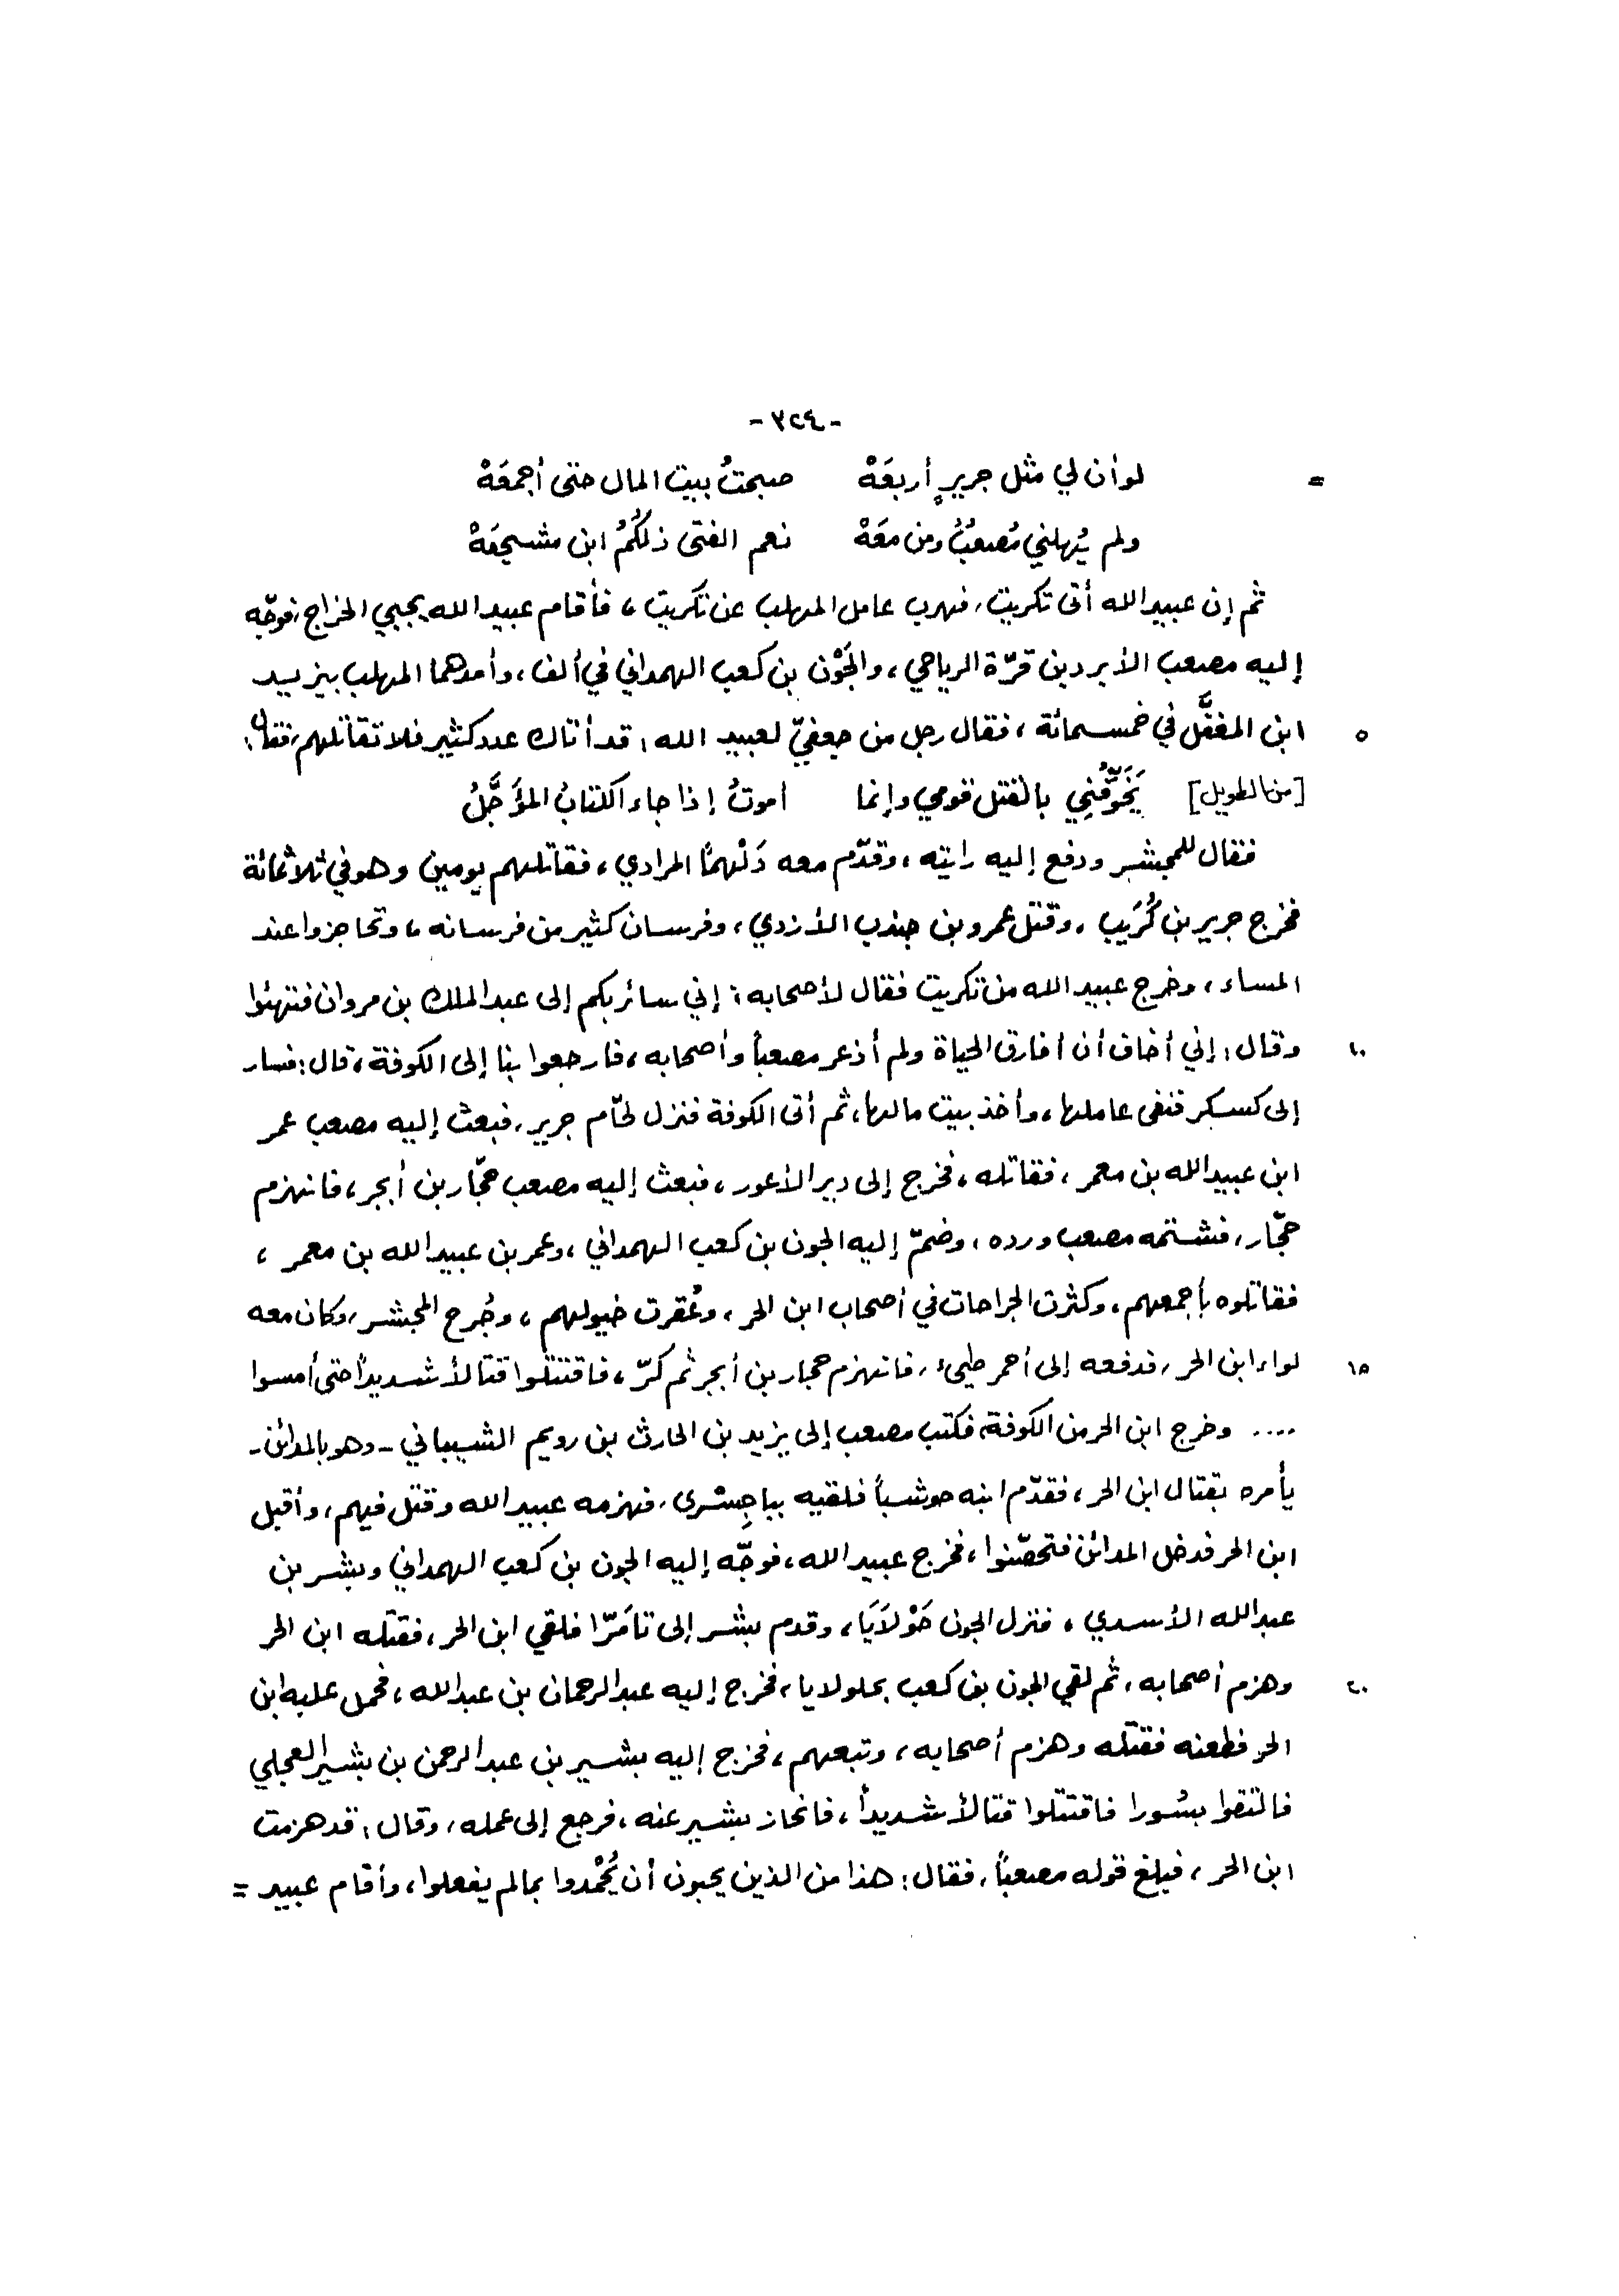 -٣٢٤-
= لو أن لي مثل جريرٍ أربعَهْ صبحتُ بيت المال حتى أجمعَهْ
ولم يُهلني مُصعبٌ ومن معَهْ نعم الفتى ذلكُمُ ابن مشجعَهْ
ثم إن عبيدالله أتى تكريت، فهرب عامل المهلب عن تكريت، فأقام عبيدالله يجبي الخراج، فوجّه
إليه مصعب الأبرد بن قرّة الرياحي، والجَوْن بن كعب الهمداني في ألف، وأمدهما المهلب بيزيد
٥ ابن المغفَّل في خمسمائة، فقال رجل من جعفيّ لعبيد الله: قد أتاك عدد كثير فلا تقاتلهم، فقال:
[من الطويل] يَخَوِّفُنِي بالقتل قومي وإنما أموتُ إذا جاء الكتابُ المؤَجَّلُ
فقال للمجشر ودفع إليه رايته، وقدّم معه دَلْهمًا المرادي، فقاتلهم يومين وهو في ثلاثمائة
فخرج جرير بن كُرَيب، وقتل عمرو بن جندب الأزدي، وفرسان كثير من فرسانه، وتحاجزوا عند
المساء، وخرج عبيد الله من تكريت فقال لأصحابه: إني سائر بكم إلى عبد الملك بن مروان فتهيئوا
١٠ وقال: إني أخاف أن أفارق الحياة ولم أذعر مصعباً وأصحابه، فارجعوا بنا إلى الكوفة، قال: فسار
إلى كسكر فنفى عاملها، وأخذ بيت مالها، ثم أتى الكوفة فنزل لحّام جرير، فبعث إليه مصعب عمر
ابن عبيدالله بن معمر، فقاتله، فخرج إلى دير الأعور، فبعث إليه مصعب حجّار بن أبجر، فانهزم
حجّار، فشتمه مصعب ورده، وضمّ إليه الجون بن كعب الهمداني، وعمر بن عبيدالله بن معمر،
فقاتلوه بأجمعهم، وكثرت الجراحات في أصحاب ابن الحر، وعُقرت خيولهم، وجُرح المجشر، وكان معه
١٥ لواء ابن الحر، فدفعه إلى أحمر طيء، فانهزم حجار بن أبجر ثم كرّ، فاقتتلوا قتالاً شديداً حتى أمسوا
.... وخرج ابن الحر من الكوفة، فكتب مصعب إلى يزيد بن الحارث بن رويم الشيباني - وهو بالمدائن -
يأمره بقتال ابن الحر، فقدّم ابنه حوشباً فلقيه بباجِسْرى، فهزمه عبيد الله وقتل فيهم، وأقبل
ابن الحر فدخل المدائن فتحصّنوا، فخرج عبيد الله، فوجّه إليه الجون بن كعب الهمداني وبشر بن
عبدالله الأسدي، فنزل الجون حَوْلَايَا، وقدم بشر إلى تامَرّا فلقي ابن الحر، فقتله ابن الحر
٢٠ وهزم أصحابه، ثم لقي الجون بن كعب بحلولايا، فخرج إليه عبدالرحمان بن عبدالله، فحمل عليه ابن
الحر فطعنه فقتله وهزم أصحابه، وتبعهم، فخرج إليه بشير بن عبدالرحمن بن بشير العجلي
فالتقوا بسُورا فاقتتلوا قتالاً شديداً، فانحاز بشير عنه، فرجع إلى عمله، وقال: قد هزمت
ابن الحر، فبلغ قوله مصعباً، فقال: هذا من الذين يحبون أن يُحْمدوا بما لم يفعلوا، وأقام عبيد =